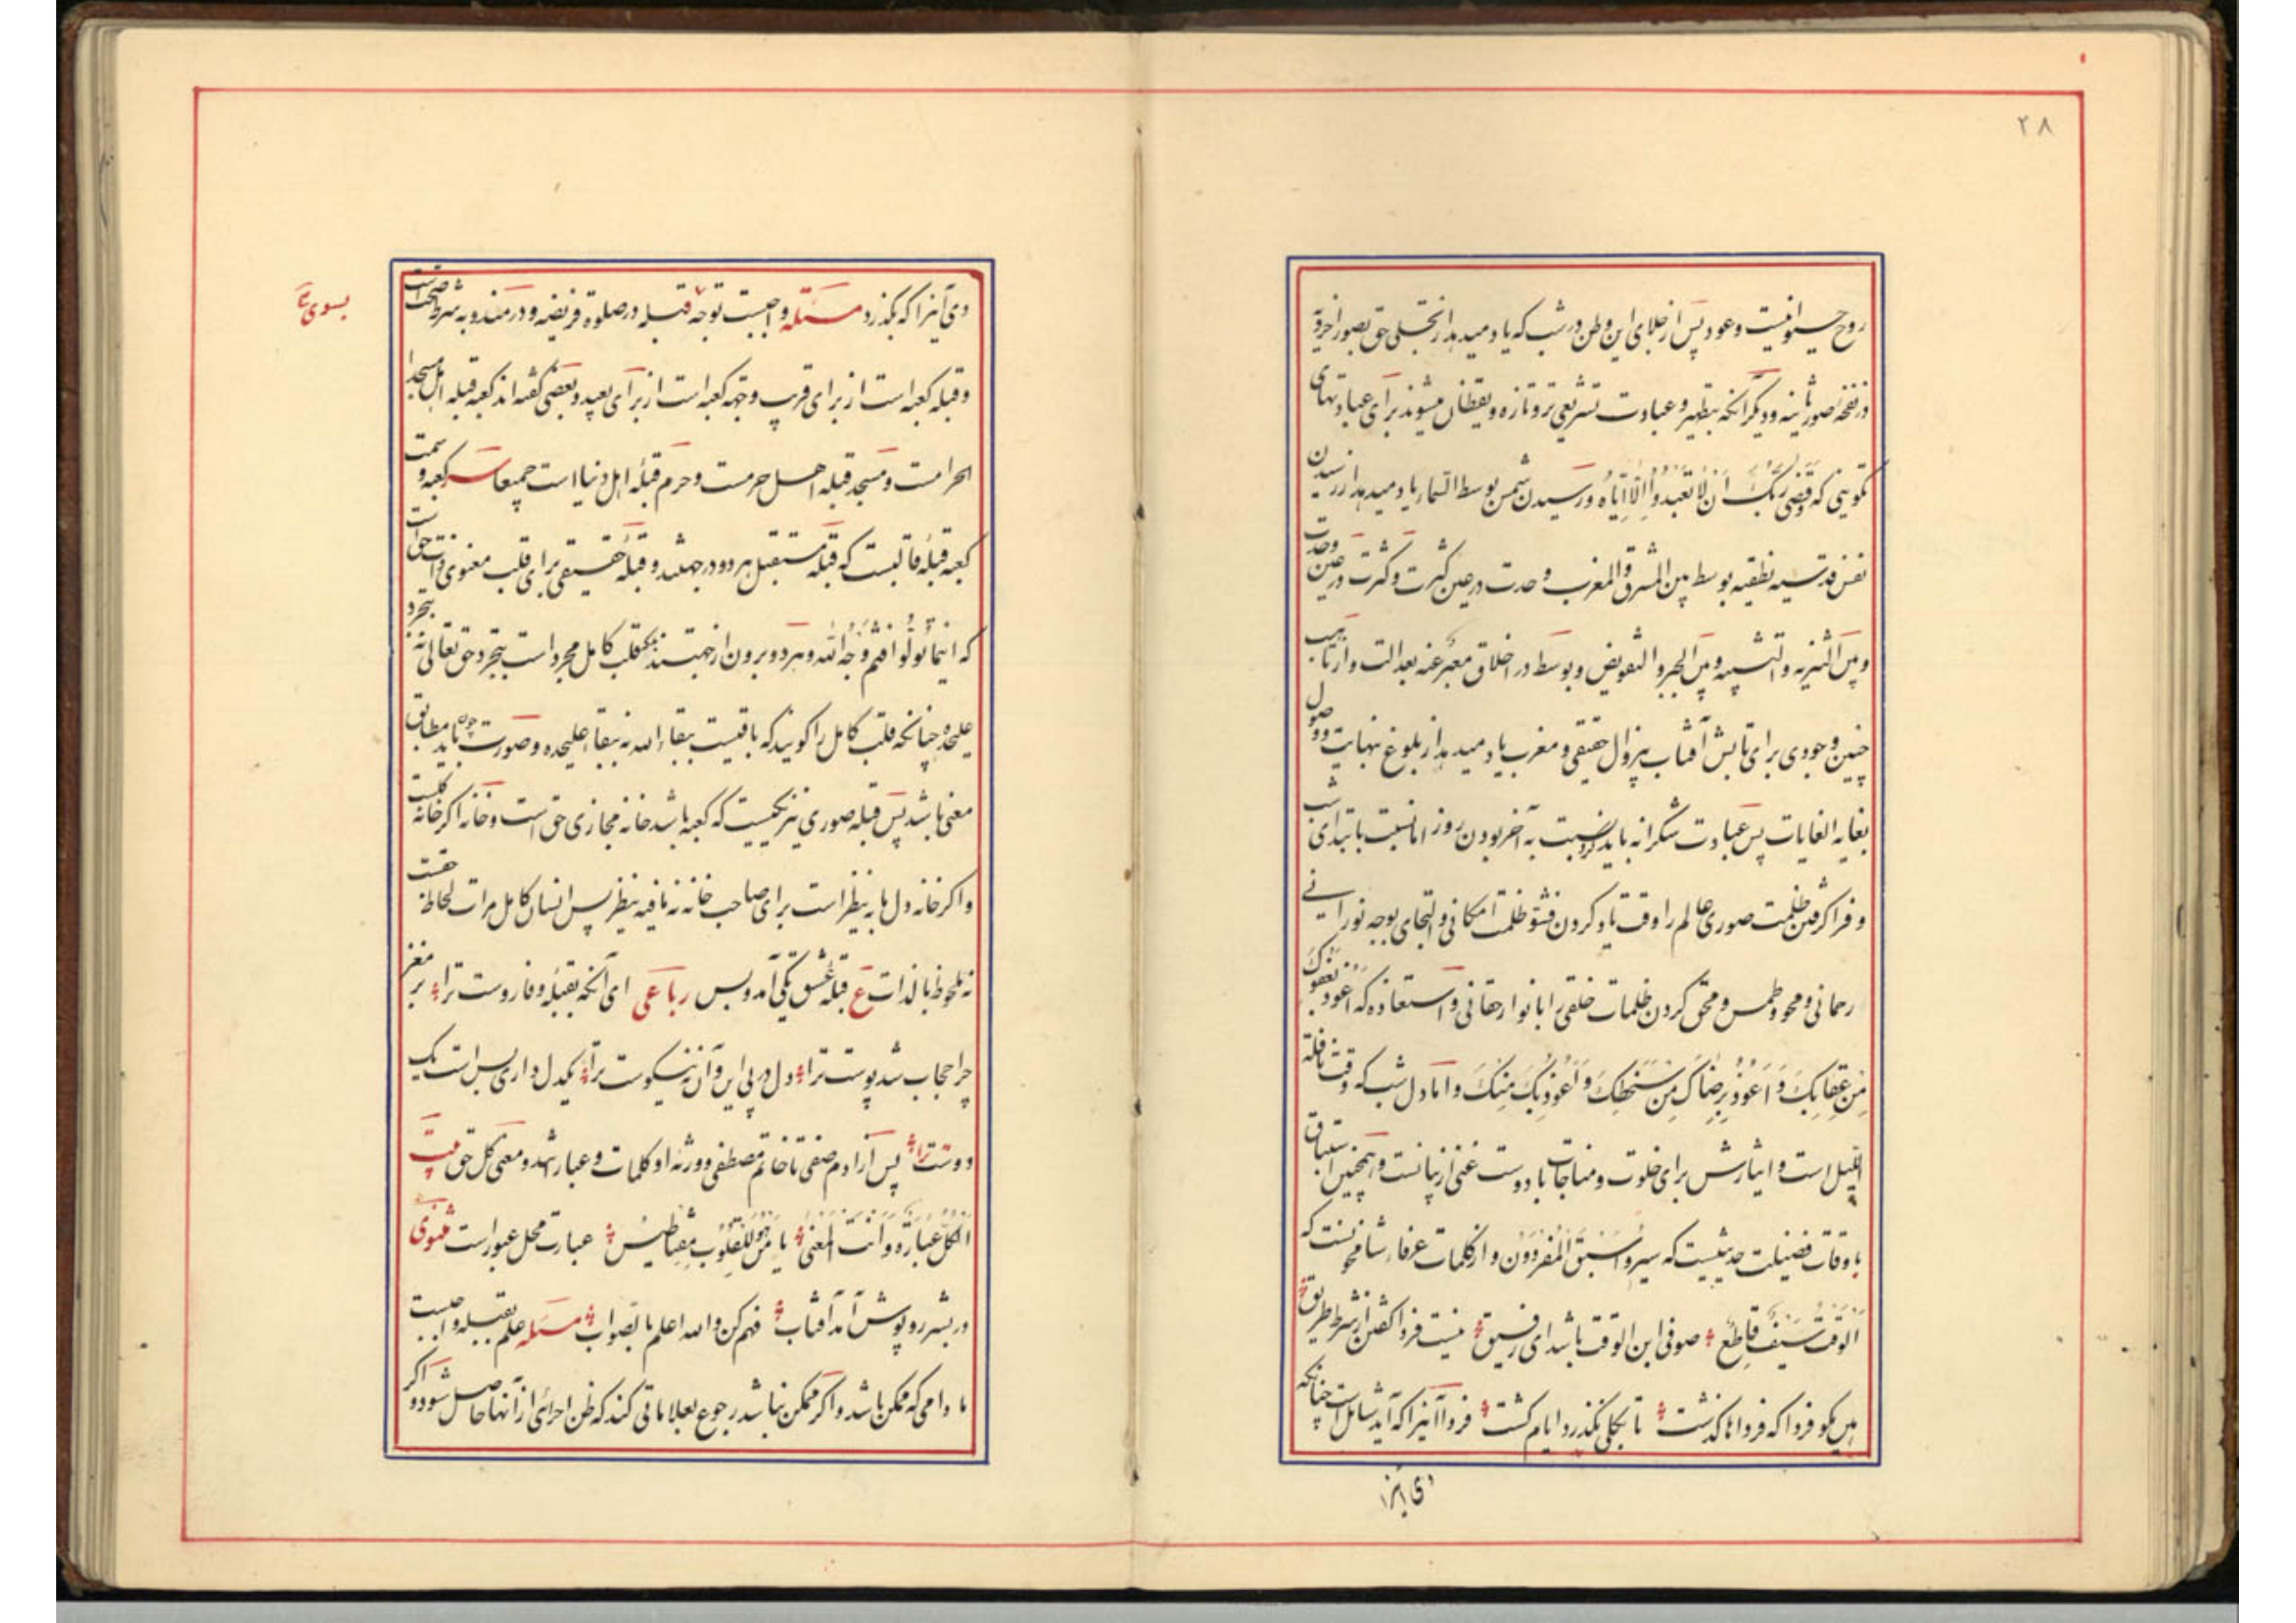 ۲۸
روح حیوانیست و عود پس از خلای این وطن در شب که یاد میدهد از تجلی حق بصور اخرویّه
در نفخه صور ثانیه و دیگر آنکه بتطهیر و عبادت تشریعی تر و تازه و یقظان میشوند برای عبادتهای
تکوینی که وَقَضی رَبُّکَ اَنْ لا تَعْبُدُوا اِلّا اِیّاهُ و رسیدن شمس بوسط السماء یاد میدهد از رسیدن
نفس قدسیه نطقیه بوسط بین المشرق و المغرب وحدت در عین کثرت و کثرت در عین وحدت
و بین التنزیه و التشبیه و بین الجبر و التفویض و بوسط در اخلاق معبر عنه بعدالت و ارتاب
چنین وجودی برای تابش آفتاب بیزوال حقیقی و مغرب یاد میدهد از بلوغ نهایت و وصول
بغایه الغایات پس عبادت شکرانه باید کرد نسبت به آخر بودن روز اما نسبت بابتدای شب
و فرا گرفتن ظلمت صوری عالم را وقت یاد کردن ظلمت امکانی و التجای بوجه نورانی
رحمانی و محو و طمس و محق کردن ظلمات خلقی را با نوار حقانی و استعاذه که اَعُوذُ بِعَفْوِکَ
مِن عِقابِکَ وَ اَعُوذُ بِرِضاکَ مِن سَخَطِکَ وَ اَعُوذُ بِکَ مِنکَ و اما دل شب که وقت نافلة
اللیل است و ایثارش برای خلوت و مناجات با دوست غنی از بیانست و همچنین استباق
باوقات فضیلت حدیثیست که سیروا سَبَقَ المُفْرِدُون و از کلمات عرفاء شامخونست که
اَلوَقتُ سَیفٌ قاطِعٌ صوفی ابن الوقت باشد ای رفیق نیست فردا گفتن از شرط طریق
هین مگو فردا که فرداها گذشت تا بکلی نگذرد ایام کشت فردا آنرا که آید شامل است چنانکه
دی آنرا
دی آنرا که بگذرد مسئله واجبست توجه قبله در صلوة فریضه و در مندوبه شرط صحت است
بسوی
و قبله کعبه است از برای قریب وجهه کعبه است از برای بعید و بعضی گفته اند کعبه قبله اهل مسجد
الحرامست و مسجد قبله اهل حرمست و حرم قبله اهل دنیا است جمیعا سر کعبه و سمت
کعبه قبله قالبست که قبله مستقبل هر دو در جهتند و قبله حقیقی برای قلب معنوی ذات حق است
که اینما تُوَلّوا فَثَمَّ وَجهُ الله و هر دو برون از جهتند بلکه قلب کامل مجرد است بتجرد حق تعالی نه بتجرد
علیحده چنانکه قلب کامل را گویند که باقیست ببقاء الله نه ببقاء علیحده و صورت چون باید مطابق
معنی باشد پس قبله صوری نیز یکیست که کعبه باشد خانه مجازی حق است و خانه اگر خانه گلست
و اگر خانه دل ما به ینظر است برای صاحب خانه نه ما فیه ینظر پس انسان کامل مرات لحاظ حقست
نه ملحوظ بالذات ع قبله عشق یکی آمد و بس رباعی ای آنکه بقبله وفا روست ترا بر مغز
چرا حجاب شد پوست ترا دل در پی این و آن نه نیکوست ترا یکدل داری بس است یک
دوست ترا پس از آدم صفی تا خاتم مصطفی و ورثه او کلمات و عباراتند و معنی کل حق بیت
اَلکُلُّ عِبارَةٌ وَ اَنتَ المَعنی یا مَن هُوَ لِلقُلوبِ مِغناطیس عبارت محل عبور است مثنوی
در بشر روپوش آمد آفتاب فهم کن والله اعلم بالصواب مسئله علم بقبله واجبست
ما دامی که ممکن باشد و اگر ممکن نباشد رجوع بعلاماتی کند که ظن اجزائی از آنها حاصل شود و اگر